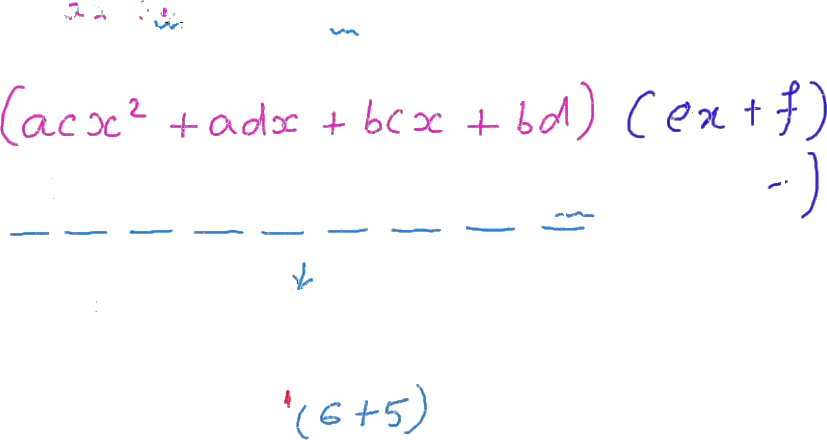 (acx² + adx + bcx + bd) (ex + f)
(6 + 5)